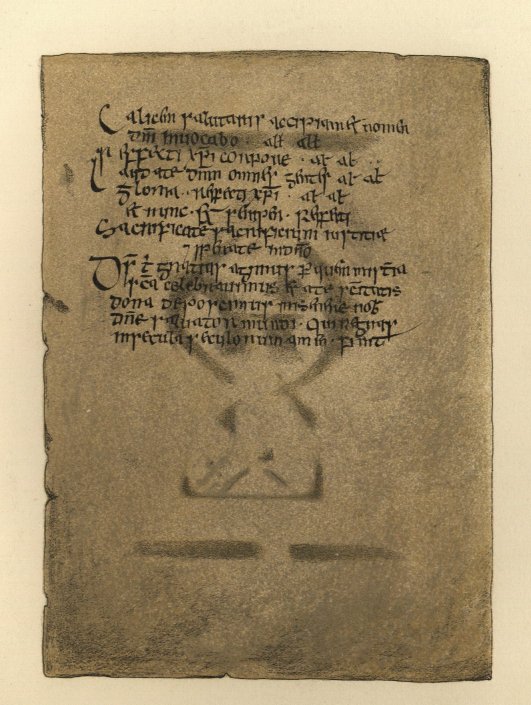 Calicem salutaris accipiam et nomen
dnī invocabo · all all
Refecti xpī corpore · al al
Laudate dnm omnes gentes al al
gloria · Refecti xpī · al al
et nunc · Et semper · Refecti
Sacrificate sacrificium iustitie
⁊ sperate in dno
Ds t̄ gratias agimus p quem mistia
sca celebrauimus et ate sctitatis
dona deposcimus miserere nob
dne saluator mundi · Qui regnas
in secula seculorum am̄ · Finit